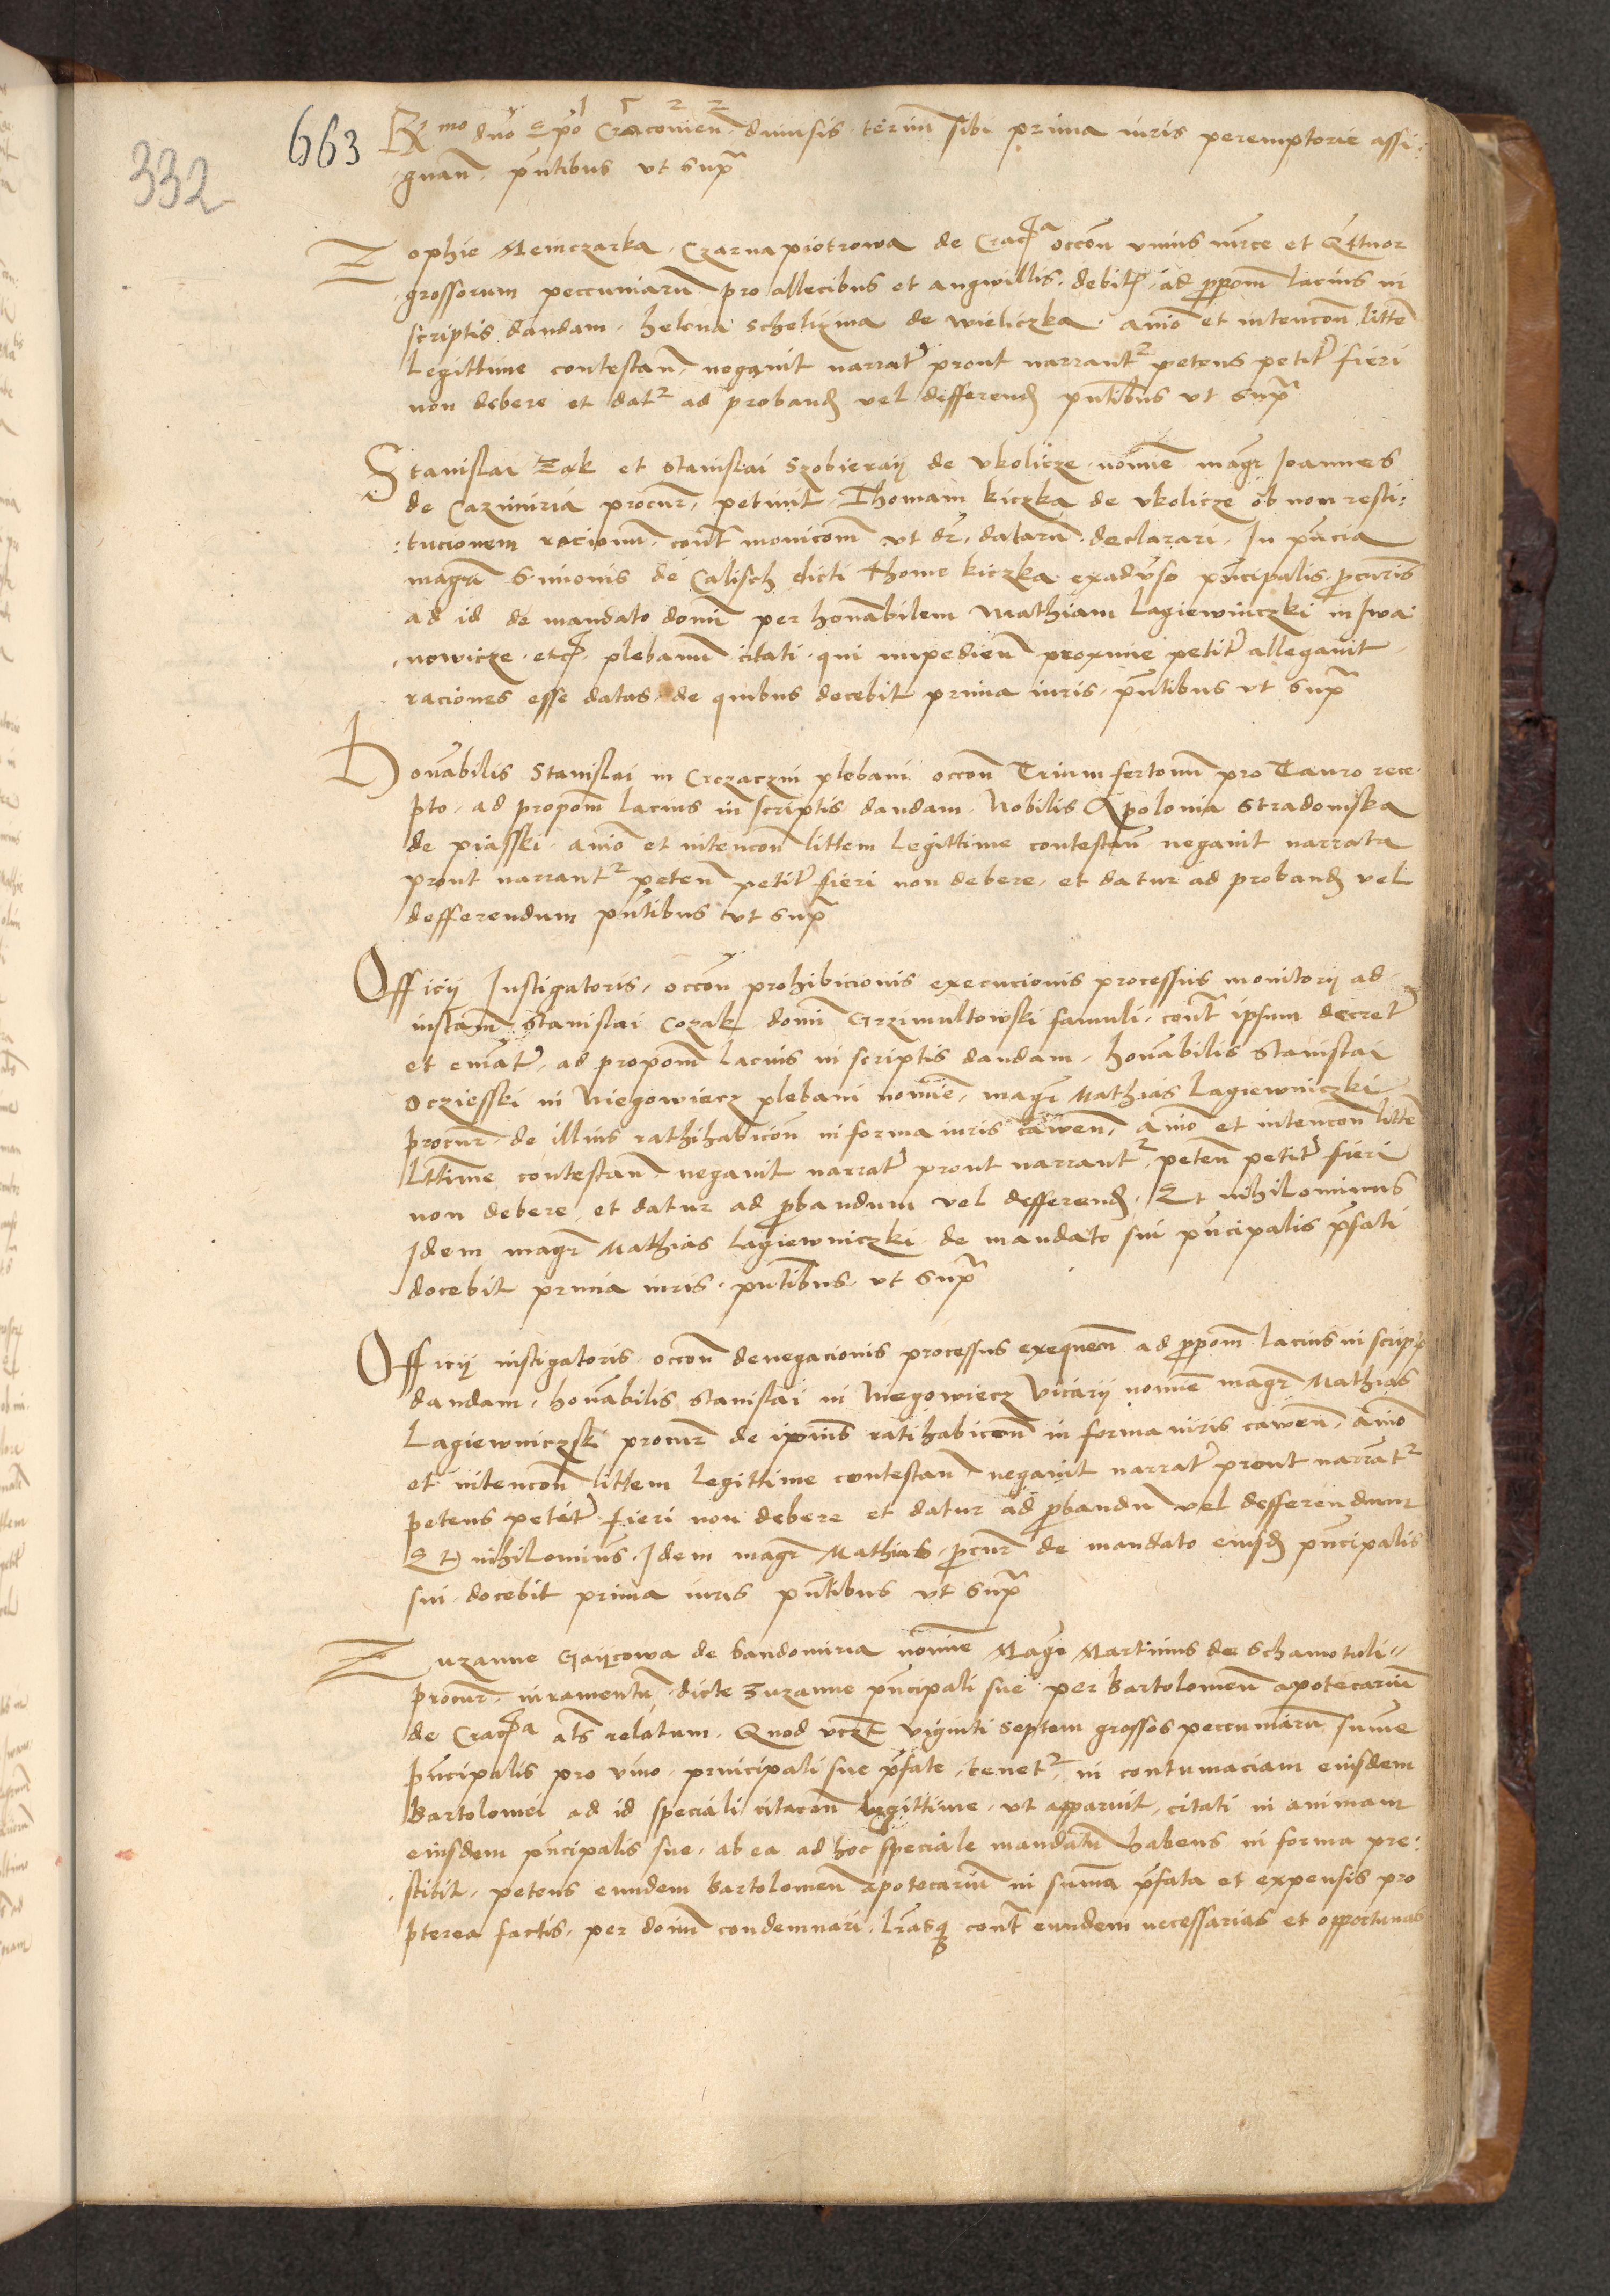 1522
663 R mo dno Epo Cracovien. dimisis. terim sibi prima iuris peremptorie assi:
332
gnan. pntibus ut supra
Zophie Memczarka. Czarnapiotrowa de Crac a occon unius mrce et Qttuor
grossorum peccuniaru pro allecibus et angwillis. debit. ad ppom lacius in
scriptis dandam. helena schelizina de wieliczka. anio et intencon littem
legittime contestan. negavit narrat prout narrant petens petit fieri
non debere et dat ad proband vel defferend pntibus ut supra
Stanislai Zak et Stanislai Szobieraij de Ukolicze. nomine magr Joannes
de Cazimiria procur. petivit. Thomam kiczka de Ukolicze ob non resti:
:tucionem racionu. cont monicom ut dr. dataru. declarari. In pncia
magri Simonis de Calisch dicti Thome kiczka exadverso pncipalis pcuris
ad id de mandato domi per honabilem Mathiam Lagiewniczki in Iwa
nowicze. etc. plebanu citati. qui impedien proxime petit allegavit
raciones esse datas. de quibus docebit prima iuris. pntibus ut supra
Honabilis Stanislai in Crczaczin plebani occon Trium fertonu pro Tauro rece
pto. ad propom lacius in scriptis dandam. Nobilis Apolonia Stradomska
de piasski. anio et intencon littem legittime contestan negavit narrata
prout narrant peten petit fieri non debere. et datur ad proband vel
defferendum pntibus ut supra
Officij Instigatoris. occon prohibicionis execucionis processus monitorij ad
instam Stanislai Cozak domi Grzimultowski famuli. cont ipsum decret
et emat. ad propom lacius in scriptis dandam. honabilis Stanislai
Ocziesski in Niegowiecz plebani nomine. magr Mathias Lagiewniczki
procur. de illius rathihabicon in forma iuris cawen. anio et intencon littem
lttime contestan. negavit narrat prout narrant. peten petit fieri
non debere. et datur ad pbandum vel defferend. Et nihilominus
Idem magr Mathias Lagiewniczki de mandato sui pncipalis pfati
docebit prima iuris. pntibus. ut supra
Officij instigatoris. occon denegacionis processus exequen ad ppom lacius in script
dandam. honabilis Stanislai in Niegowiecz Vicarij nomine magr Mathias
Lagiewniczki procur de ipius ratihabicon in forma iuris cawen. Anio
et intencon littem legittime contestan negavit narrat prout narrat
petens petit fieri non debere et datur ad pbandu vel defferendum
Et nihilominus. Idem magr Mathias pcur de mandato eiusd pncipalis
sui docebit prima iuris pntibus ut supra
Zuzanne Gaijcowa de Sandomiria nomine Magr Martinus de Schamotuli
procur. iuramentu dicte Zuzanne pncipali sue per Bartolomeu apotecariu
de Crac a als relatum. Quod vczt viginti septem grossos peccuniaru sume
pncipalis pro vino principali sue pfate tenet. in contumaciam eiusdem
Bartolomei ad id speciali citacon legittime. ut apparuit. citati in animam
eiusdem pncipalis sue. ab ea ad hoc speciale mandatu habens in forma pre:
stitit. petens eundem Bartolomeu apotecariu in suma pfata et expensis pro
pterea factis. per domi condemnari. lrasq cont eundem necessarias et opportunas